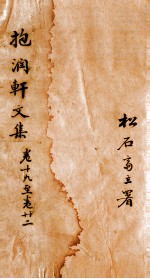 抱潤軒文集
卷十九至卷廿二
松石齋主署